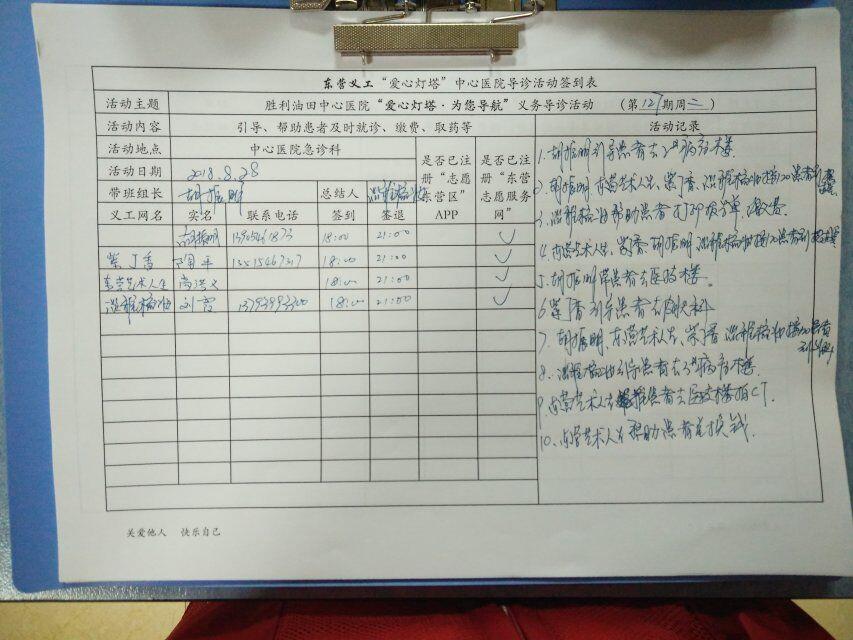 东营义工“爱心灯塔”中心医院导诊活动签到表
活动主题 胜利油田中心医院“爱心灯塔·为您导航”义务导诊活动 (第127期周二)
活动内容 引导、帮助患者及时就诊、缴费、取药等 活动记录
活动地点 中心医院急诊科 是否已注册“志愿东营区”APP 是否已注册“东营志愿服务网”
活动日期 2018.8.28
带班组长 胡振明 总结人
义工网名 实名 联系电话 签到 签退
胡振明 18:00 21:00 ✓
紫丁香 18:00 21:00 ✓
东营艺术人生 18:00 21:00 ✓
18:00 21:00 ✓
1. 胡振明引导患者去2#病房楼.
2. 胡振明 东营艺术人生、紫丁香、接120患者到
3. 帮助患者打印报告单,缴费.
4. 东营艺术人生、紫丁香、胡振明、接120患者到
5. 胡振明带患者去医技楼.
6. 紫丁香引导患者去
7. 胡振明、东营艺术人生、紫丁香 接120患者
8. 引导患者去3#病房楼.
9. 东营艺术人生 患者去医技楼拍CT.
10. 东营艺术人生帮助患者兑换钱.
关爱他人 快乐自己